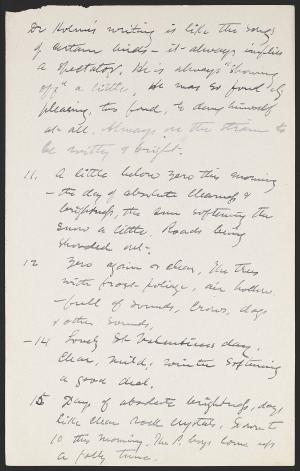 Dr Holmes's writing is like the songs
of certain birds - it always implies
a spectator. He is always "showing
off" a little. He was so fond of
pleasing, too fond, to deny himself
at all. Always on the strain to
be witty & bright.
11. A little below zero this morning
- the day of absolute clearness &
brightness, the sun softening the
snow a little. Roads being
shoveled out.
12 Zero again & clear, The trees
with frost foliage, air hollow
- full of sounds, crows, dogs
& other sounds,
- 14 Lovely St Valentines day,
Clear, mild; winter softening
a good deal.
15 Day of absolute brightness, day
like clear rock crystal, down to
10 this morning. The P. boys come up
a jolly time.